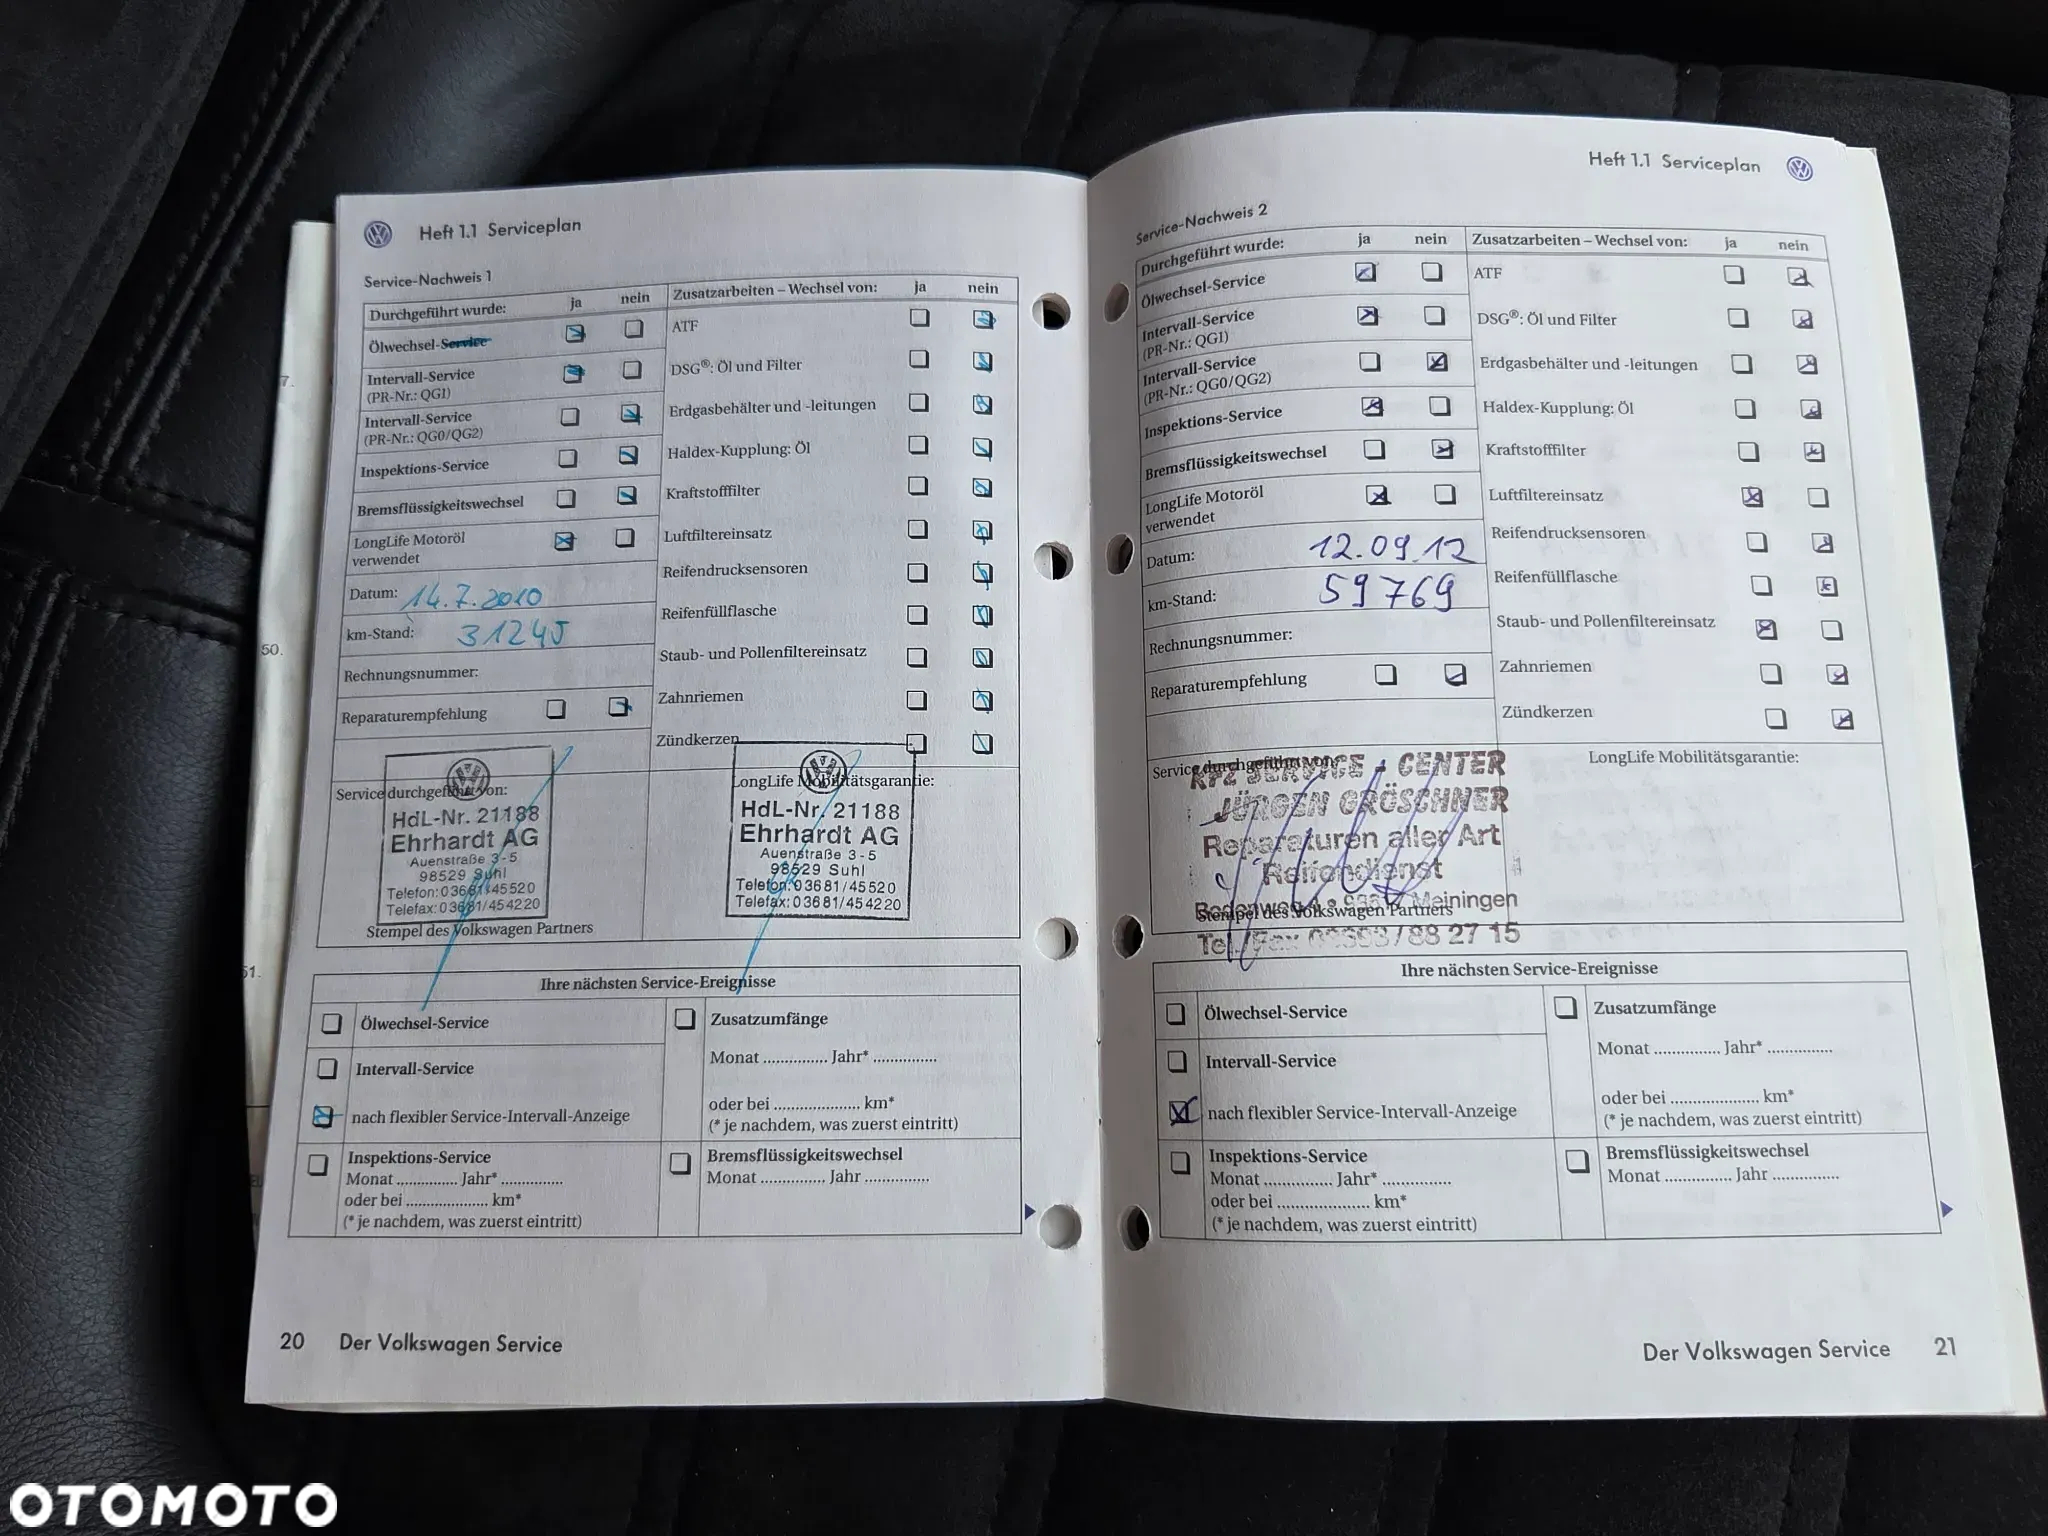 Heft 1.1 Serviceplan
Service-Nachweis 1
Durchgeführt wurde: ja nein
Ölwechsel-Service
Intervall-Service
(PR-Nr.: QG1)
Intervall-Service
(PR-Nr.: QG0/QG2)
Inspektions-Service
Bremsflüssigkeitswechsel
LongLife Motoröl
verwendet
Datum: 14.7.2010
km-Stand: 31245
Rechnungsnummer:
Reparaturempfehlung
Zusatzarbeiten – Wechsel von: ja nein
ATF
DSG®: Öl und Filter
Erdgasbehälter und -leitungen
Haldex-Kupplung: Öl
Kraftstofffilter
Luftfiltereinsatz
Reifendrucksensoren
Reifenfüllflasche
Staub- und Pollenfiltereinsatz
Zahnriemen
Zündkerzen
Service durchgeführt von:
HdL-Nr. 21188
Ehrhardt AG
Auenstraße 3-5
98529 Suhl
Telefon: 03681/45520
Telefax: 03681/454220
Stempel des Volkswagen Partners
LongLife Mobilitätsgarantie:
HdL-Nr. 21188
Ehrhardt AG
Auenstraße 3-5
98529 Suhl
Telefon: 03681/45520
Telefax: 03681/454220
Ihre nächsten Service-Ereignisse
Ölwechsel-Service
Intervall-Service
nach flexibler Service-Intervall-Anzeige
Inspektions-Service
Monat ............... Jahr* ...............
oder bei ..................... km*
(* je nachdem, was zuerst eintritt)
Zusatzumfänge
Monat ............... Jahr* ...............
oder bei ..................... km*
(* je nachdem, was zuerst eintritt)
Bremsflüssigkeitswechsel
Monat ............... Jahr ...............
20 Der Volkswagen Service
Heft 1.1 Serviceplan
Service-Nachweis 2
Durchgeführt wurde: ja nein
Ölwechsel-Service
Intervall-Service
(PR-Nr.: QG1)
Intervall-Service
(PR-Nr.: QG0/QG2)
Inspektions-Service
Bremsflüssigkeitswechsel
LongLife Motoröl
verwendet
Datum: 12.09.12
km-Stand: 59769
Rechnungsnummer:
Reparaturempfehlung
Zusatzarbeiten – Wechsel von: ja nein
ATF
DSG®: Öl und Filter
Erdgasbehälter und -leitungen
Haldex-Kupplung: Öl
Kraftstofffilter
Luftfiltereinsatz
Reifendrucksensoren
Reifenfüllflasche
Staub- und Pollenfiltereinsatz
Zahnriemen
Zündkerzen
Service durchgeführt von:
KFZ SERVICE - CENTER
JÜRGEN GRÖSCHNER
Reparaturen aller Art
Reifendienst
Meiningen
Stempel des Volkswagen Partners
Tel./Fax 03693/88 27 15
LongLife Mobilitätsgarantie:
Ihre nächsten Service-Ereignisse
Ölwechsel-Service
Intervall-Service
nach flexibler Service-Intervall-Anzeige
Inspektions-Service
Monat ............... Jahr* ...............
oder bei ..................... km*
(* je nachdem, was zuerst eintritt)
Zusatzumfänge
Monat ............... Jahr* ...............
oder bei ..................... km*
(* je nachdem, was zuerst eintritt)
Bremsflüssigkeitswechsel
Monat ............... Jahr ...............
Der Volkswagen Service 21
7.
50.
51.
OTOMOTO